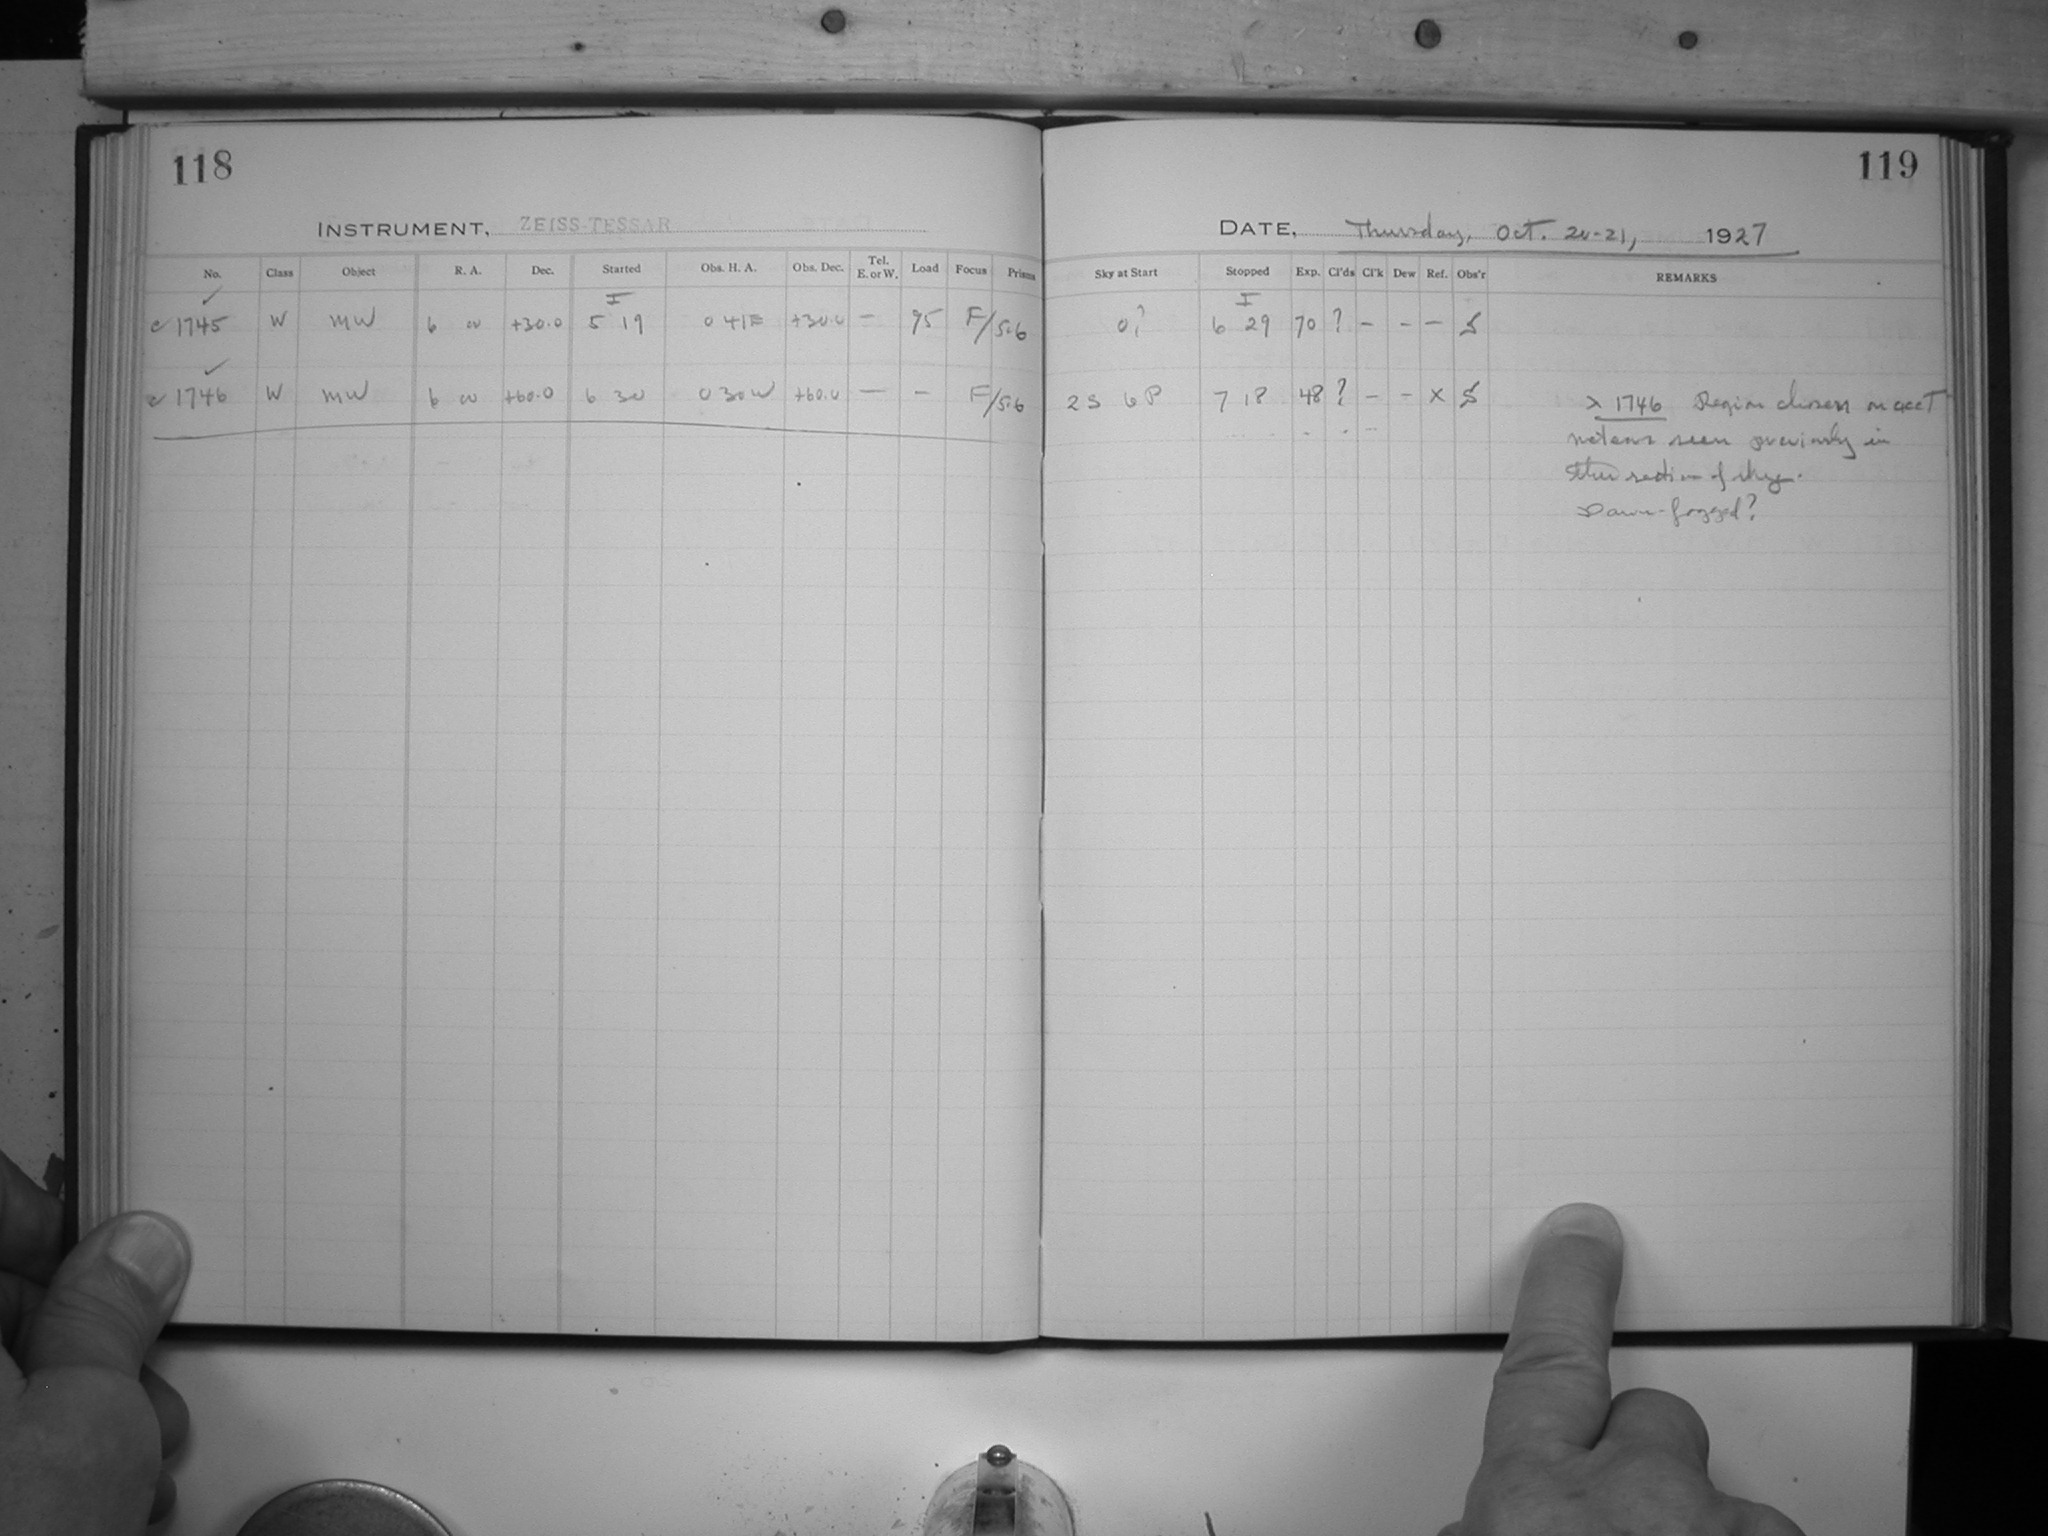 118
119
INSTRUMENT, ZEISS-TESSAR
DATE, Thursday, Oct. 20-21, 1927
No. Class Object R. A. Dec. Started Obs. H. A. Obs. Dec. Tel. E. or W. Load Focus Prisms Sky at Start Stopped Exp. Cl'ds Cl'k Dew Ref. Obs'r REMARKS
I I
✓ 1745 W MW 6 00 +30.0 5 19 0 41E +30.0 — 95 F/5.6 0? 6 29 70 ? – – – S
✓ 1746 W MW 6 00 +60.0 6 30 0 30W +60.0 — – F/5.6 2S 6P 7 18 48 ? – – x S
x 1746 Region chosen on acct
meteors seen previously in
this section of sky.
Dawn-fogged?